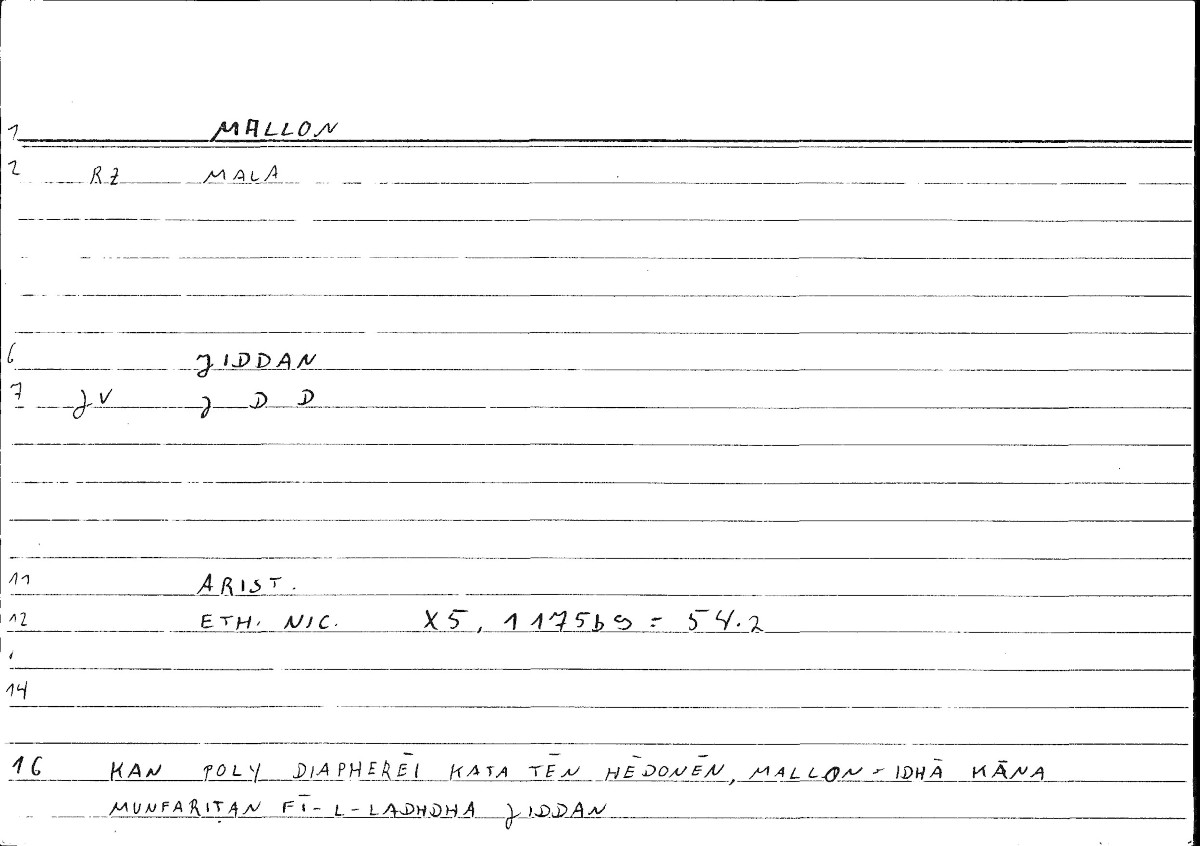 1 MALLON
2 RZ MALA
6 JIDDAN
7 JV J D D
11 ARIST.
12 ETH. NIC. X5, 1175b9 = 54.2
14
16 KAN POLY DIAPHERĒI KATA TĒN HĒDONĒN, MALLON - IDHĀ KĀNA
MUNFARIṬAN FĪ-L-LADHDHA JIDDAN